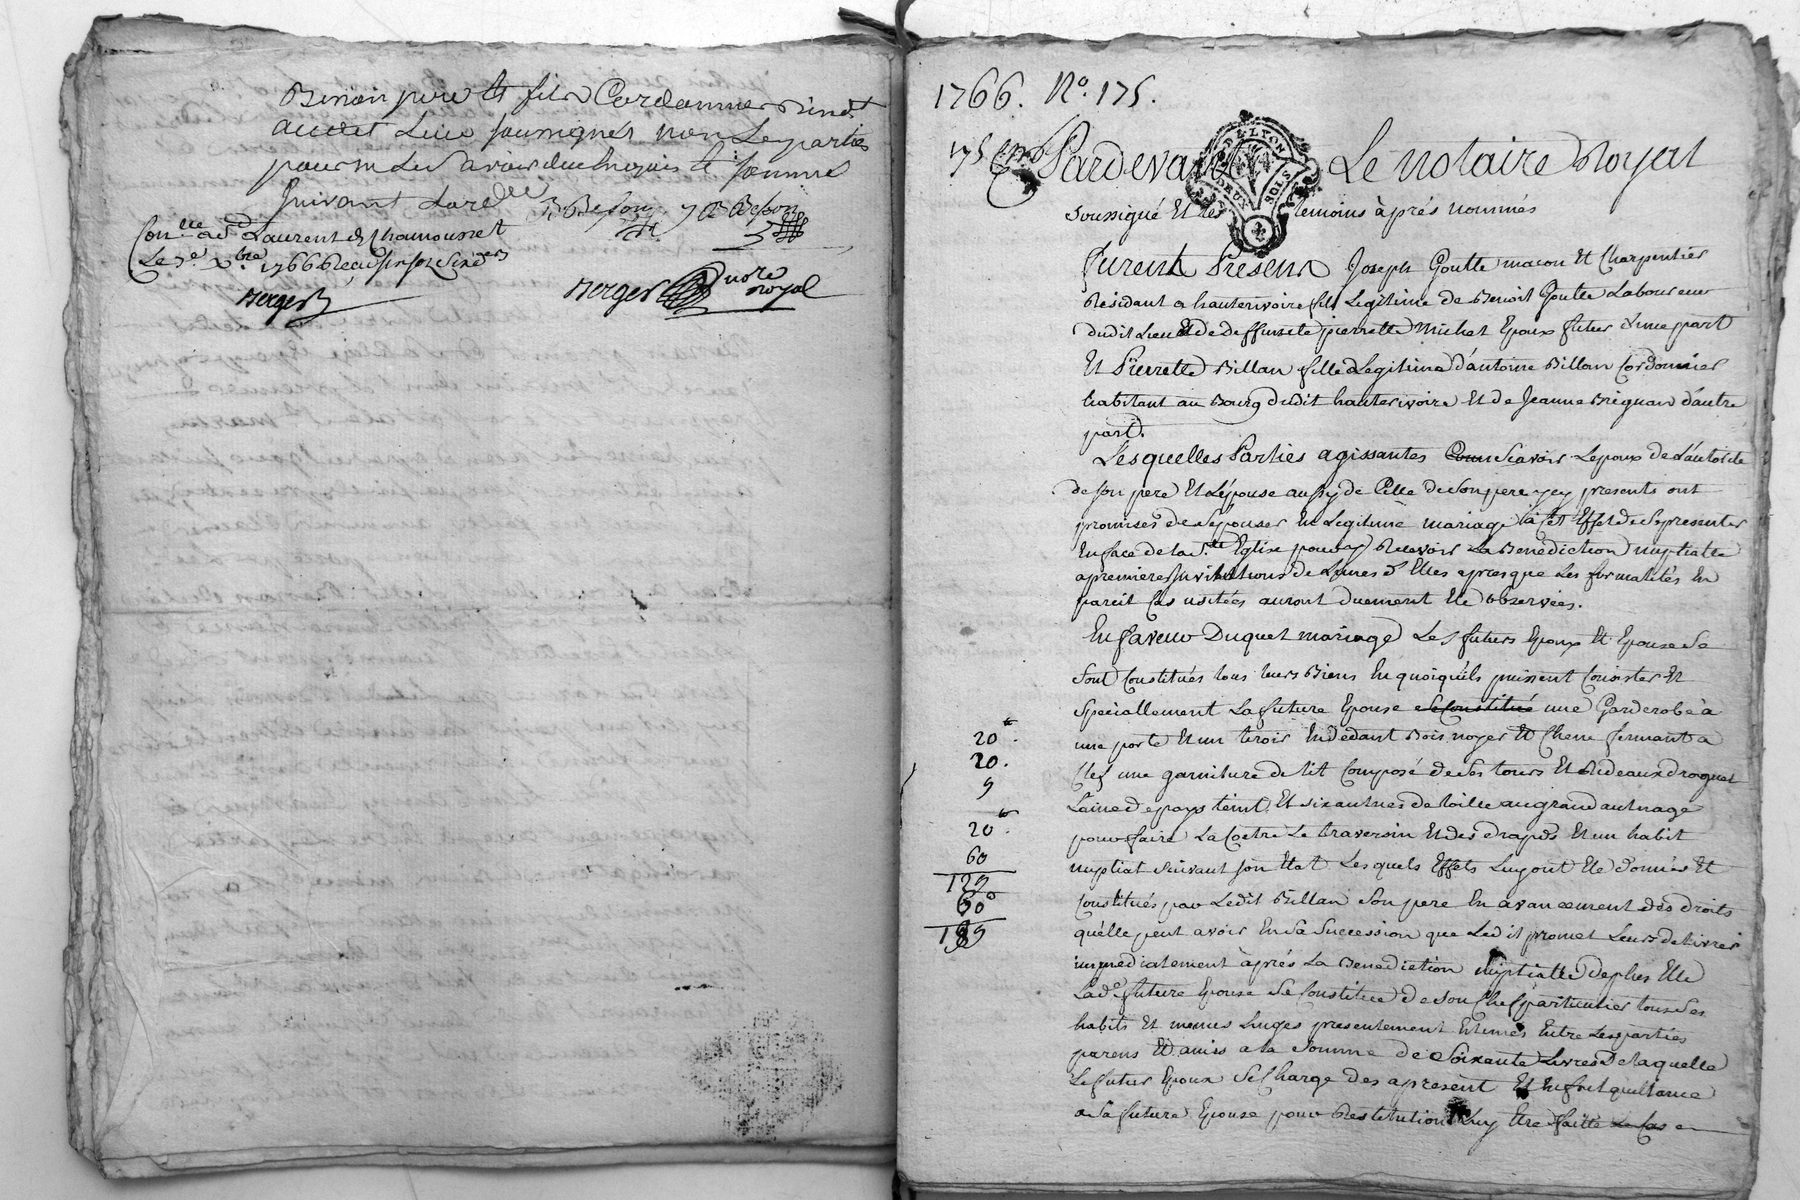 Besson pere et fils Cordonnier
avec Luio soussignés non les parties
pour ne le sçavoir de ce enquis et sommé
suivant l'ord.ce
B Besson JB Besson
Con.lle a St Laurent de Chamousset
Le 7e xbre 1766 Reçu six sols six den
Berger
Berger Nore royal
1766. No. 175.
175 Pardevant Le Notaire Royal
DE LYON
DEUX SOLS
soussigné Et les temoins àprés nommés
furent Presens Joseph Goutte macon Et Charpentier
Résidant a hauterivoire fils Legitime de Benoit Goutte Laboureur
dudit Lieu Et de Deffunte pierrette Michel Epoux futur d'une part
Et Pierrette Billan fille Legitime d'antoine Billan Cordonnier
habitant au Bourg dudit hauterivoire Et de Jeanne Breguan d'autre
part.
Lesquelles Parties agissantes Comm Scavoir Lepoux de L'autorité
de son pere Et L'épouse aussy de Celle de son pere ycy presents ont
promises de s'épouser En Legitime mariage à Cet Effet de Se presenter
En face de la Ste Eglise pour y Recevoir La Benediction nuptialle
a premieres Invitations de L'une d'Elles apresque Les formalités En
pareil Cas usitées auront duement Eté observées.
En faveur Duquel mariage Les futurs Epoux Et Epouse Se
Sont Constitués tous leurs Biens En quoiqu'ils puissent Consister Et
Spéciallement La future Epouse se Constitué une Garderobe à
20tt. une porte Et un tiroir En dedant Bois noyer Et Chene fermant a
20. Clef une garniture de lit Composé de Ses tours Et Rideaux droguet
9 Laine de pays teint Et six autnes de toille au grand autnage
20tt. pour faire La Coetre Le traversin Et des drapds Et un habit
60 nuptial suivant Son Etat Lesquels Effets Luy ont Eté donnés Et
129 Constitués par Ledit Billan Son pere En avancement des droits
60 qu'elle peut avoir En Sa Succession que Ledit promet Leurs delivrer
189 immediatement àprés La Benediction nuptialle de plus Elle
Lad.e future Epouse Se Constitue de son Chef particulier tous Ses
habits Et menus Linges presentement Estimés Entre Les parties
parens Et amis a la Somme de Soixante Livres De laquelle
Le futur Epoux Se Charge des apresent Et En fait quittance
a Sa future Epouse pour Restitution Luy Etre faitte Le Cas